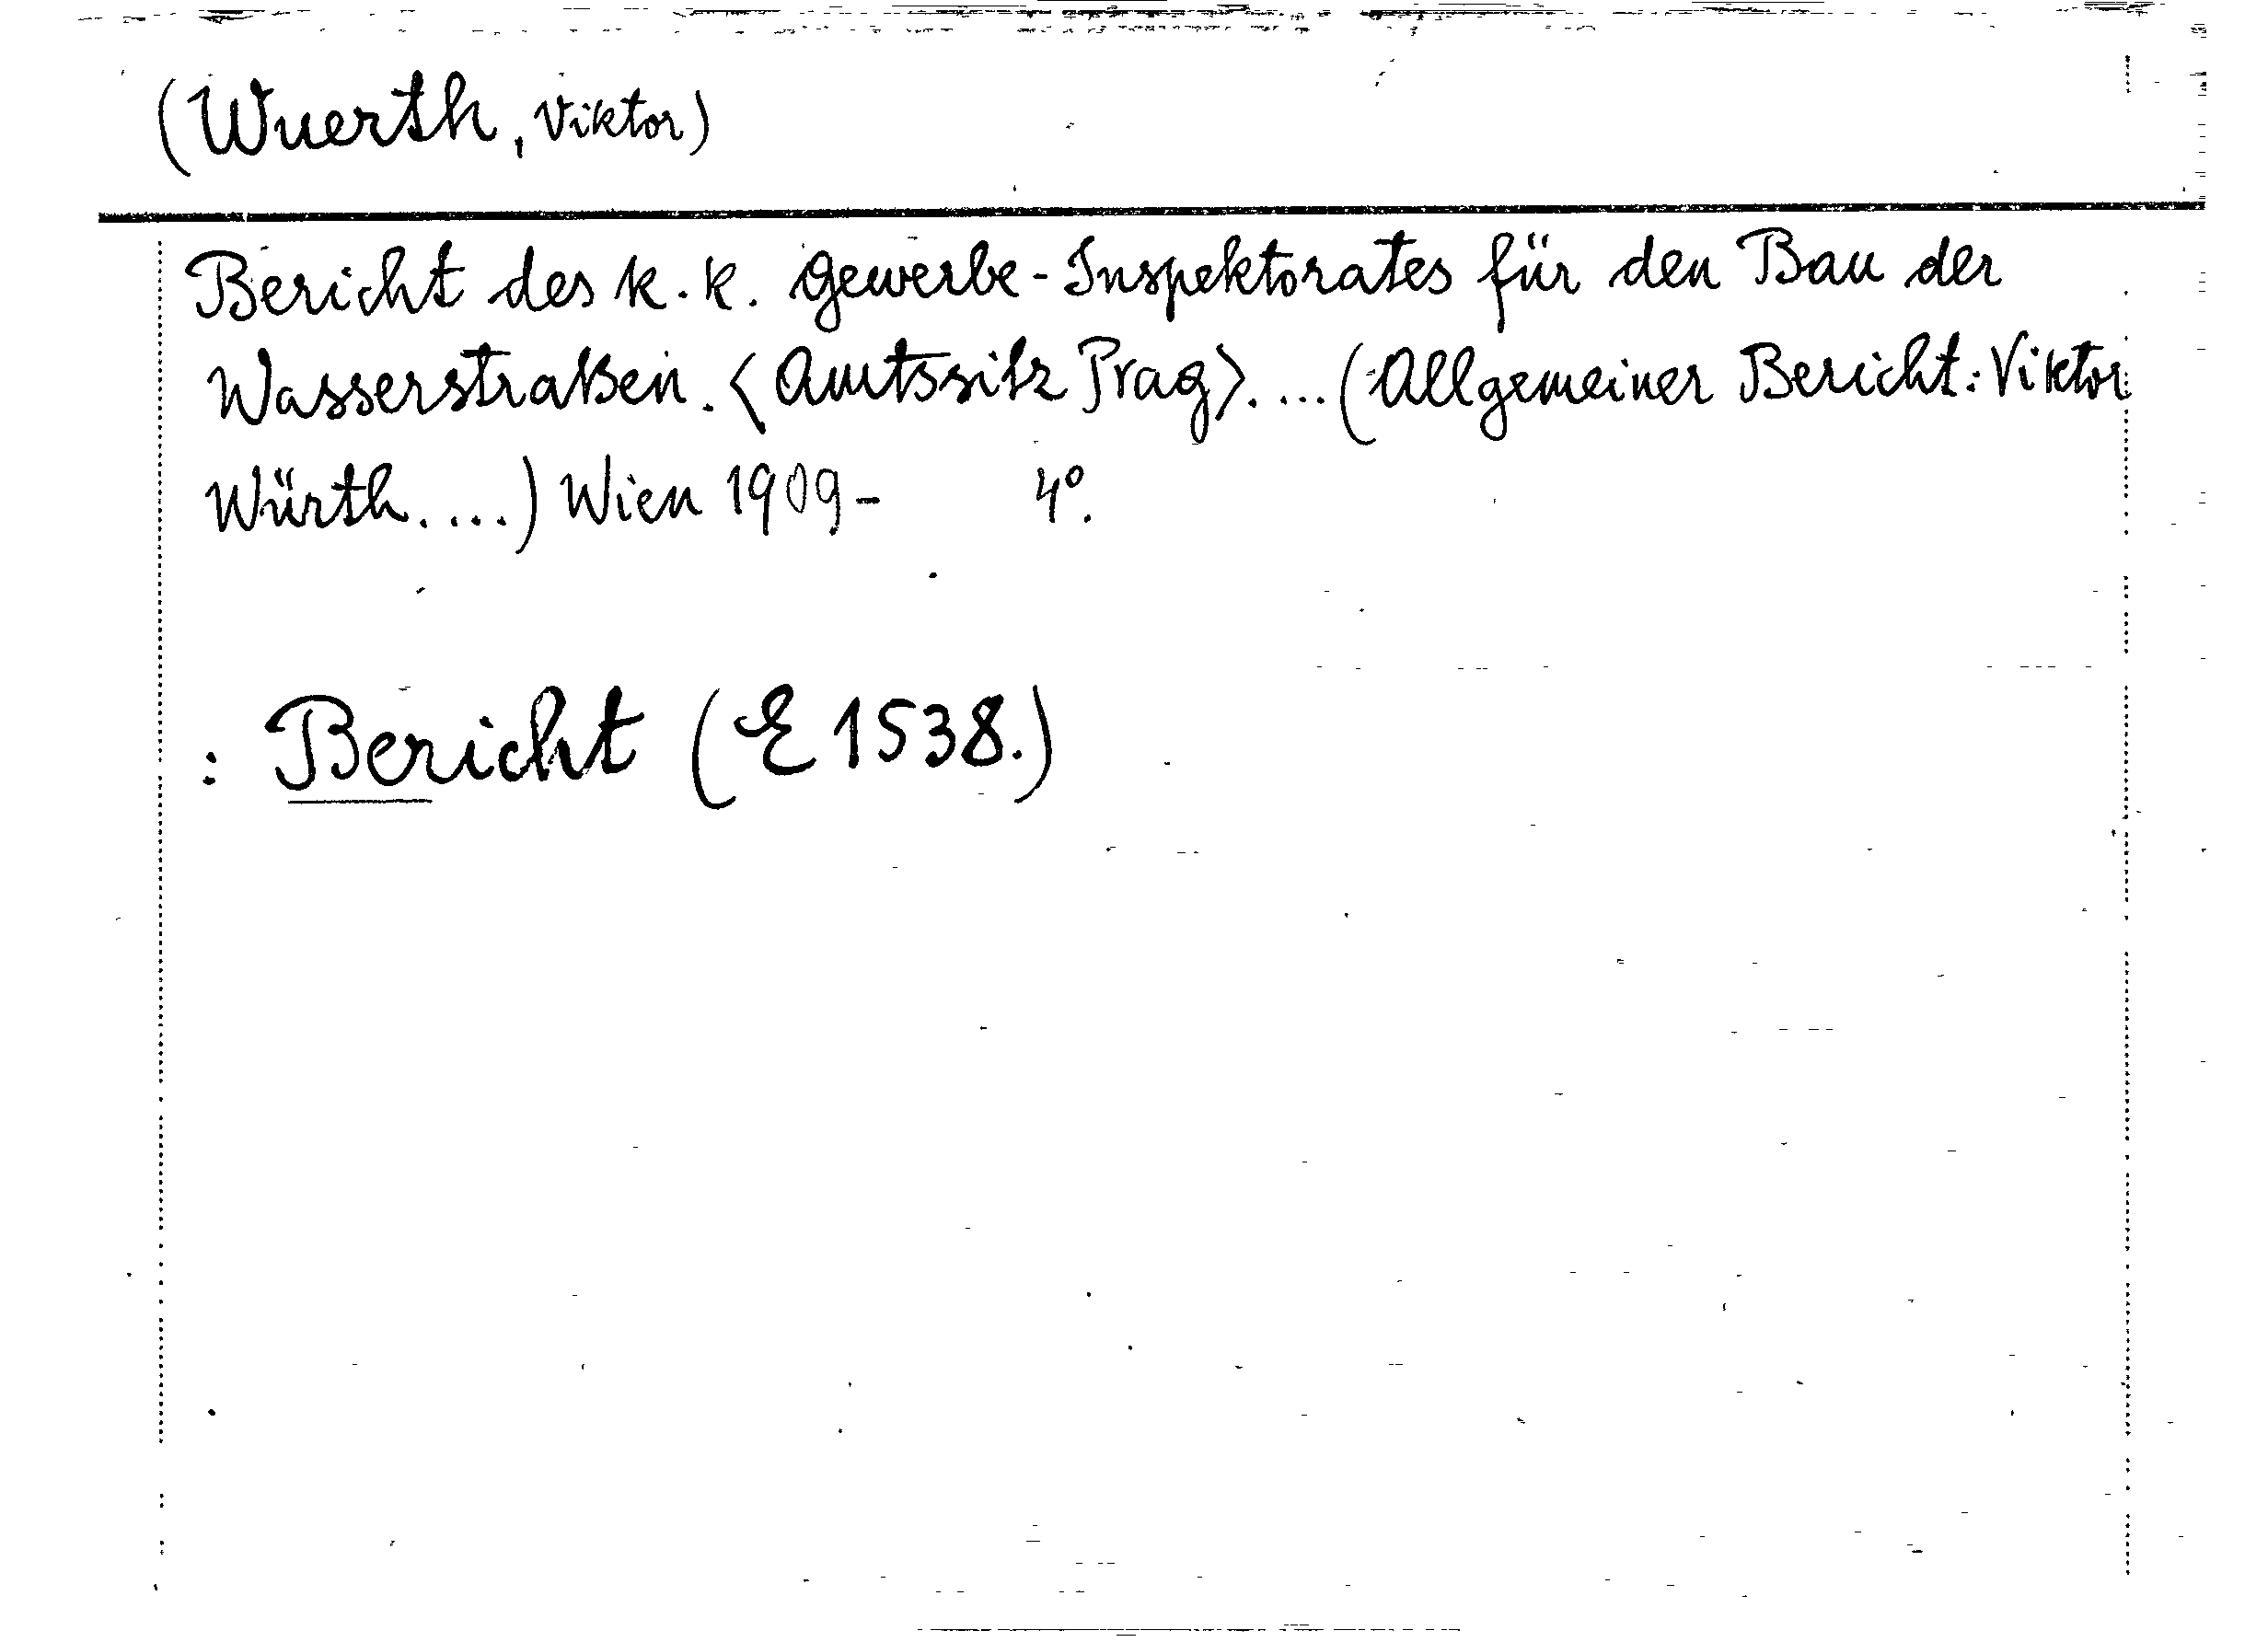 (Wuerth, Viktor)
Bericht des k. k. Gewerbe-Inspektorates für den Bau der
Wasserstraßen. <Amtssitz Prag>. ... (Allgemeiner Bericht: Viktor
Würth. ...) Wien 1909- 4°.
: Bericht (E 1538.)